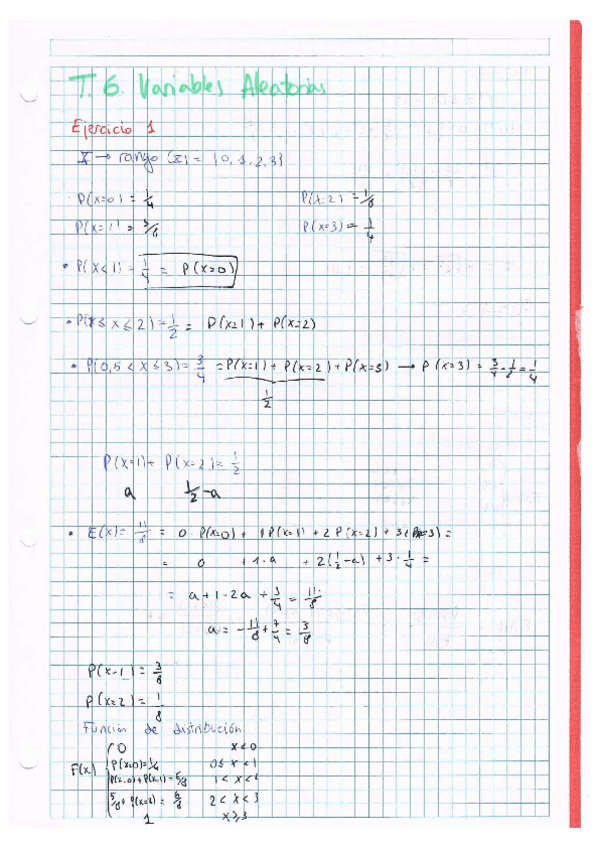 T.6. Variables Aleatorias
Ejercicio 1
X → rango (X) = {0, 1, 2, 3}
P(X=0) = 1/4 P(X=2) = 1/8
P(X=1) = 3/8 P(X=3) = 1/4
• P(X<1) = 1/4 = P(X=0)
≤ X ≤ 2) = 1/2 = P(X=1) + P(X=2)
• P(0,5 < X ≤ 3) = 3/4 = P(X=1) + P(X=2) + P(X=3) → P(X=3) = 3/4 - 1/2 = 1/4
1/2
P(X=1) + P(X=2) = 1/2
a 1/2 - a
• E(X) = 11/8 = 0 · P(X=0) + 1 P(X=1) + 2 P(X=2) + 3 P(X=3) =
= 0 + 1 · a + 2(1/2 - a) + 3 · 1/4 =
= a + 1 - 2a + 3/4 = 11/8
a = -11/8 + 7/4 = 3/8
P(X=1) = 3/8
P(X=2) = 1/8
Función de distribución
F(x) { 0 x < 0
P(X=0) = 1/4 0 ≤ x < 1
P(X=0) + P(X=1) = 5/8 1 < x <
5/8 + P(X=2) = 6/8 2 < x < 3
1 x ≥ 3